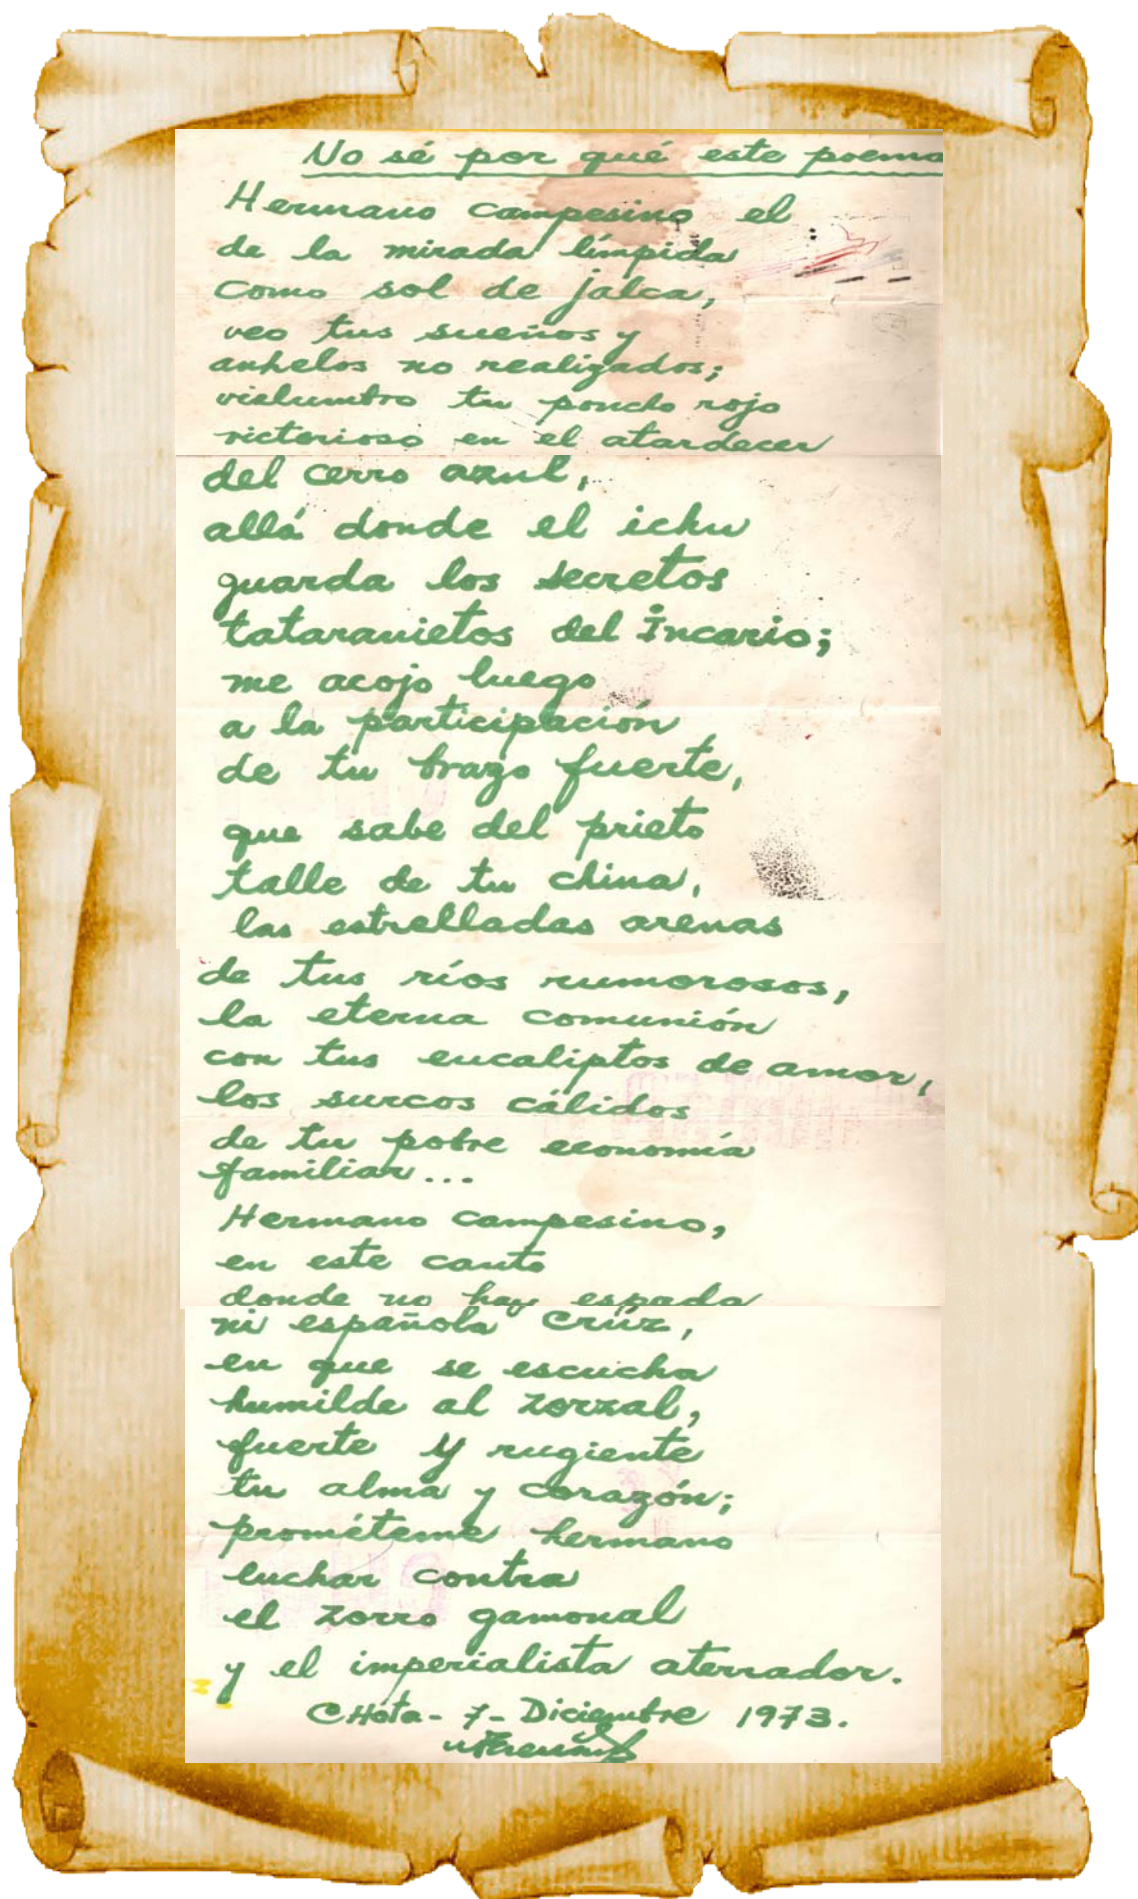 No sé por qué este poema
Hermano campesino el
de la mirada límpida
como sol de jalca,
veo tus sueños y
anhelos no realizados;
vislumbro tu poncho rojo
victorioso en el atardecer
del cerro azul,
allá donde el ichu
guarda los secretos
tataranietos del Incario;
me acojo luego
a la participación
de tu brazo fuerte,
que sabe del prieto
talle de tu china,
las estrelladas arenas
de tus ríos rumorosos,
la eterna comunión
con tus eucaliptos de amor,
los surcos cálidos
de tu pobre economía
familiar...
Hermano campesino,
en este canto
donde no hay espada
ni española crúz,
en que se escucha
humilde al zorzal,
fuerte y rugiente
tu alma y corazón;
prométeme hermano
luchar contra
el zorro gamonal
y el imperialista aterrador.
CHota - 7 - Diciembre 1973.